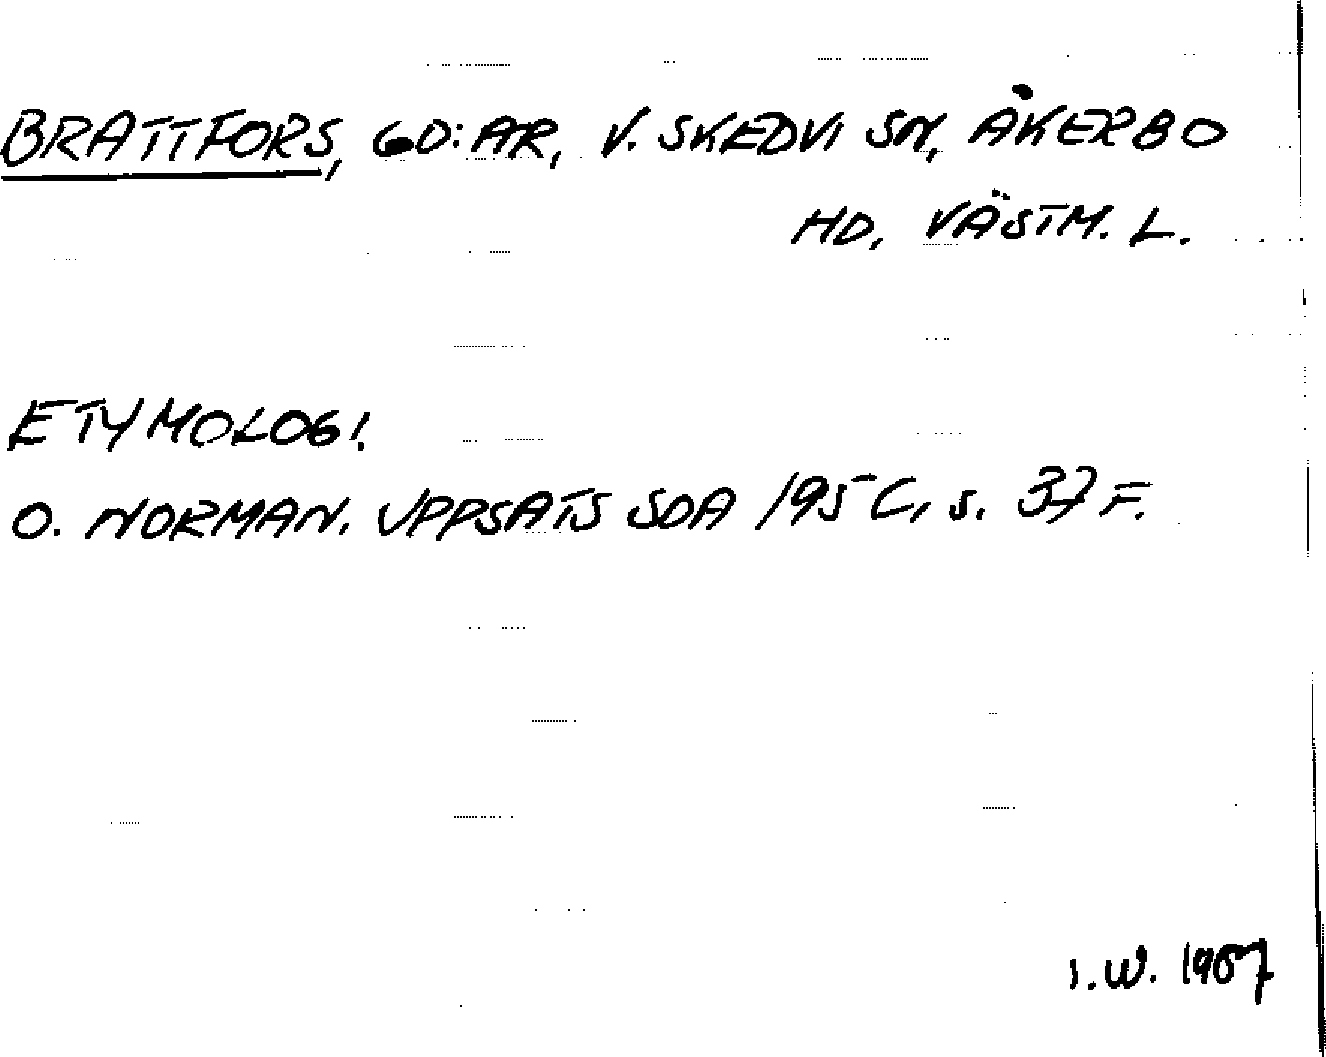 BRATTFORS, GD:AR, V. SKEDVI SN, ÅKERBO
HD, VÄSTM. L.
ETYMOLOGI.
O. NORMAN. UPPSATS SOA 195C, S. 37 F.
I.W. 1967